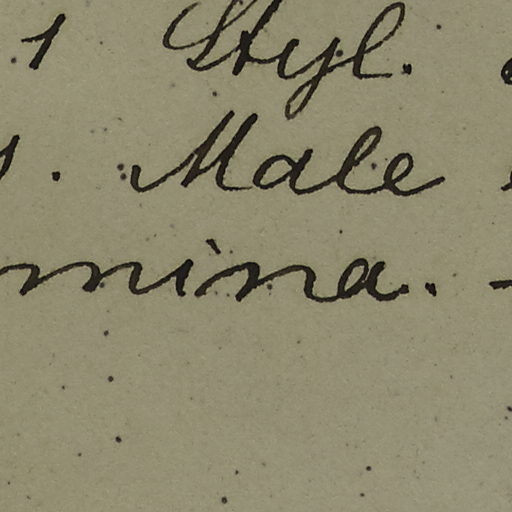 1 Styl.
. Male
mina. -